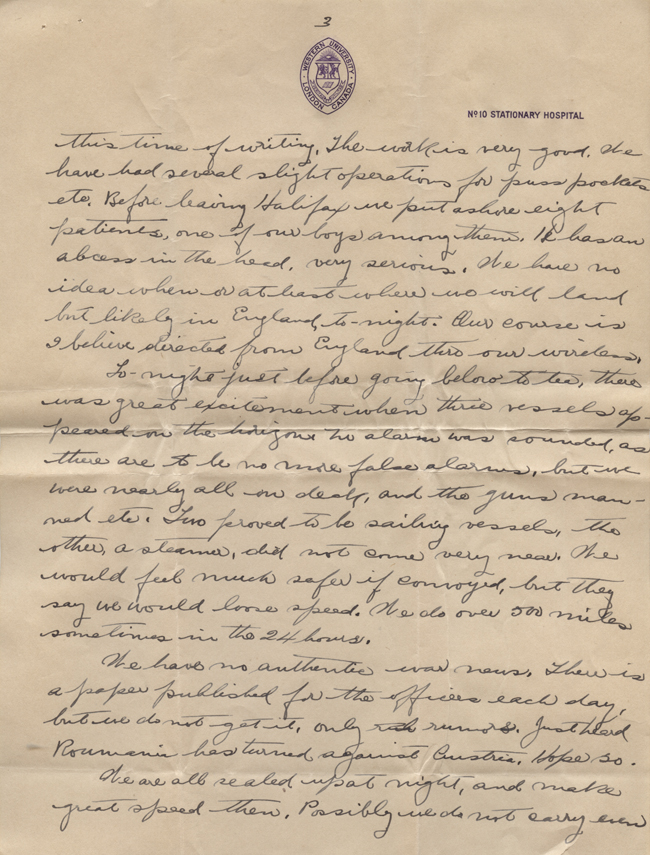 3
WESTERN UNIVERSITY
LONDON CANADA
Nº10 STATIONARY HOSPITAL
this time of writing. The work is very good. We
have had several slight operations for puss pockets
etc. Before leaving Halifax we put ashore eight
patients, one of our boys among them. He has an
abcess in the head, very serious. We have no
idea when or at least where we will land
but likely in England, to-night. Our course is
I believe directed from England thro our wireless.
To-night just before going below to tea, there
was great excitement when three vessels ap-
peared on the horizon. No alarm was sounded, as
there are to be no more false alarms, but we
were nearly all on deck, and the guns man-
ned etc. Two proved to be sailing vessels, the
other, a steamer, did not come very near. We
would feel much safer if convoyed, but they
say we would loose speed. We do over 500 miles
sometimes in the 24 hours.
We have no authentic war news. There is
a paper published for the officers each day,
but we do not get it, only rumors. Just heard
Roumania has turned against Austria. Hope so.
We are all sealed up at night, and make
great speed then. Possibly we do not carry even